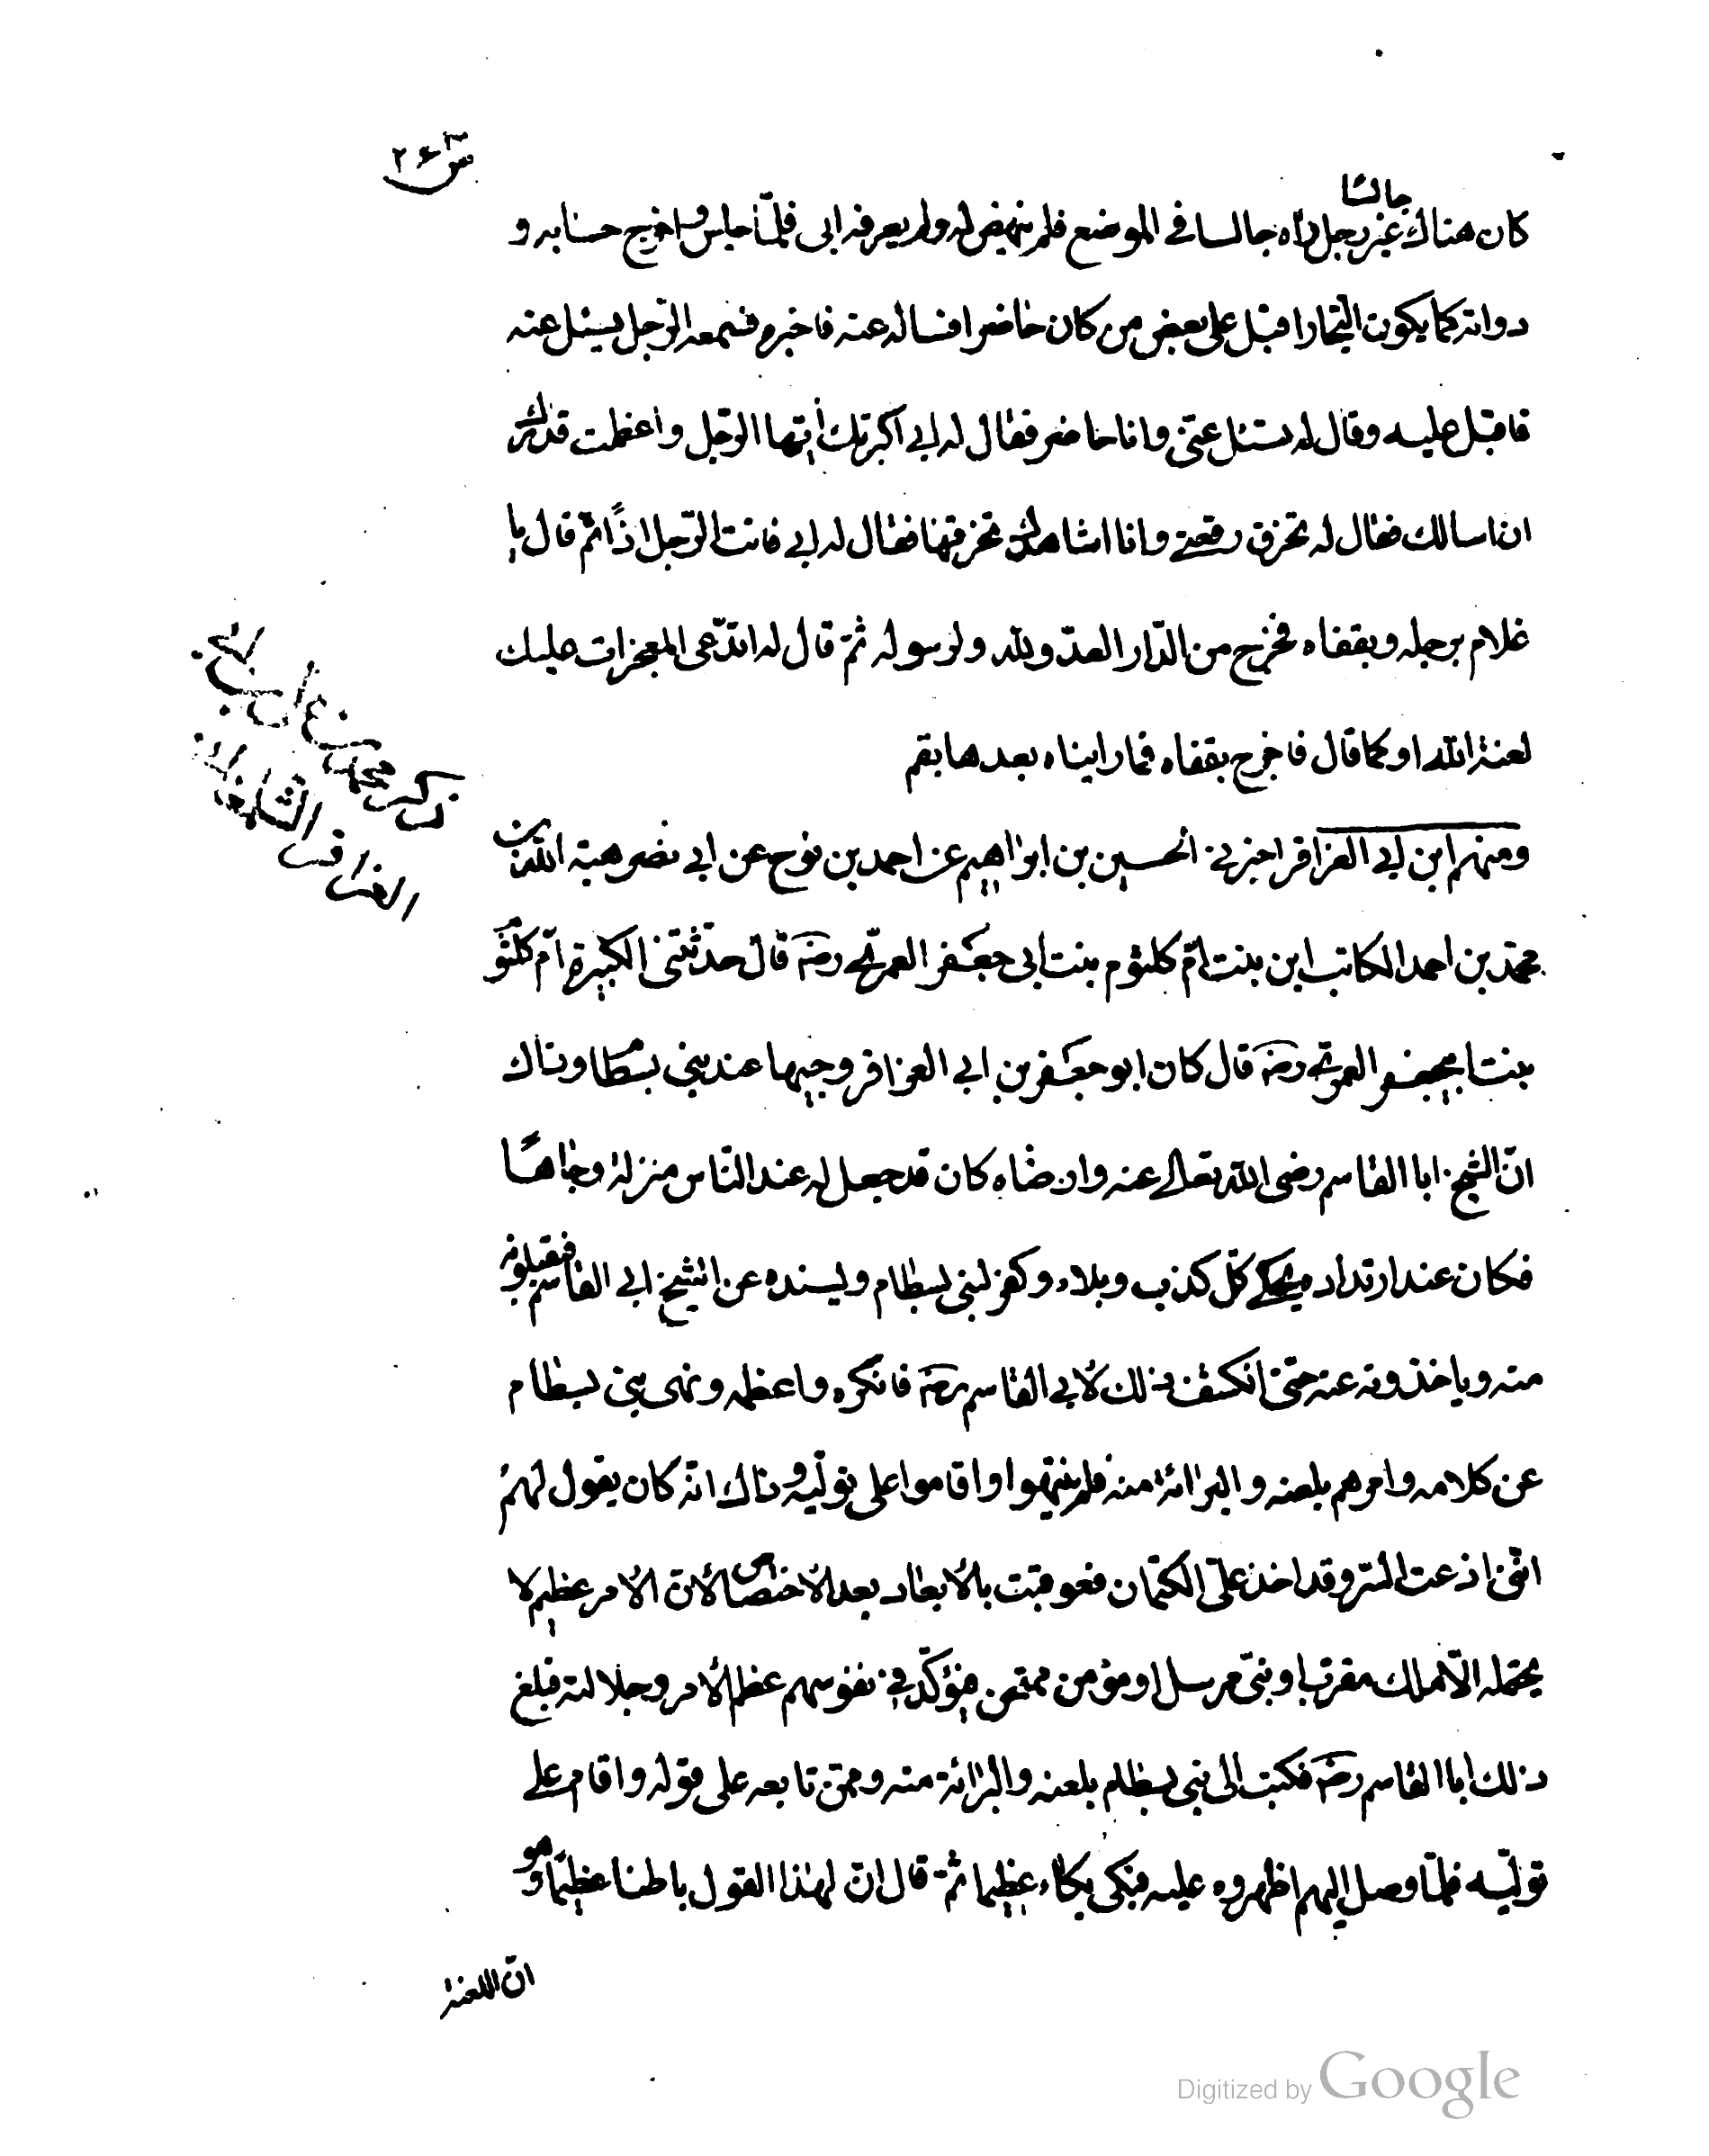 جالسًا
كان هناك غير رجل راه جالسا في الموضع فلم ينهض له ولم يعرفه ابى فلمّا جلس واخرج حسابه و
دواته كما يكون التجار اقبل على بعض من كان حاضرا فساله عنه فاخبره فسمعه الرّجل يسئل عنه
فاقبل عليه وقال له تسئل عنّى وانا حاضر فقال له ابي اكبرتك ايّها الرّجل واعظمت قدرك
ان اسالك فقال له تخرق رقعتى وانا اشاهدك تخرقها فقال له ابي فانت الرّجل اذًا ثم قال يا
غلام برجله وبقفاه فخرج من الدّار العدّو لله ولرسوله ثمّ قال له اتدّعى المعجزات عليك
لعنة الله او كما قال فاخرج بقفاه فما رايناه بعدها بقم
ومنهم ابن ابي العزاقر اخبرنى الحسين بن ابراهيم عن احمد بن نوح عن ابي نصر هبة الله بن
محمّد بن احمد الكاتب ابن بنت امّ كلثوم بنت ابى جعفر العمرىّ رضه قال حدّثتنى الكبيرة امّ كلثوم
بنت ابيجعفر العمرىّ رضه قال كان ابو جعفر بن ابي العزاقر وجيها عند بنى بسطام وذاك
انّ الشيخ ابا القاسم رضى الله تعالى عنه وارضاه كان قد جعل له عند النّاس منزلة وجاهًا
فكان عند ارتداده يحكى كلّ كذب وبلاء وكفر لبنى بسطام ويسنده عن الشيخ ابي القاسم فيقبلونه
منه وياخذونه عنه حتّى انكشف ذلك لابي القاسم رضه فانكره واعظمه ونهى بنى بسطام
عن كلامه وامرهم بلعنه والبرائة منه فلم ينتهوا واقاموا على تولّيه وذاك انّه كان يقول لهم
انّنى اذعت السّر وقد اخذ علىّ الكتمان فعوقبت بالابعاد بعد الاختصاص لأنّ الامر عظيم لا
يحتمله الّا ملك مقرب او نبىّ مرسل او مؤمن ممتحن فيؤكّد في نفوسهم عظم الأمر وجلالته فبلغ
ذلك ابا القاسم رضه فكتب الى بنى بسطام بلعنه والبرائة منه وممّن تابعه على قوله واقام على
تولّيه فلمّا وصل اليهم اظهروه عليه فبكى بكاء عظيما ثمّ قال انّ لهذا القول باطنا عظيمًا وهو
انّ اللعنة